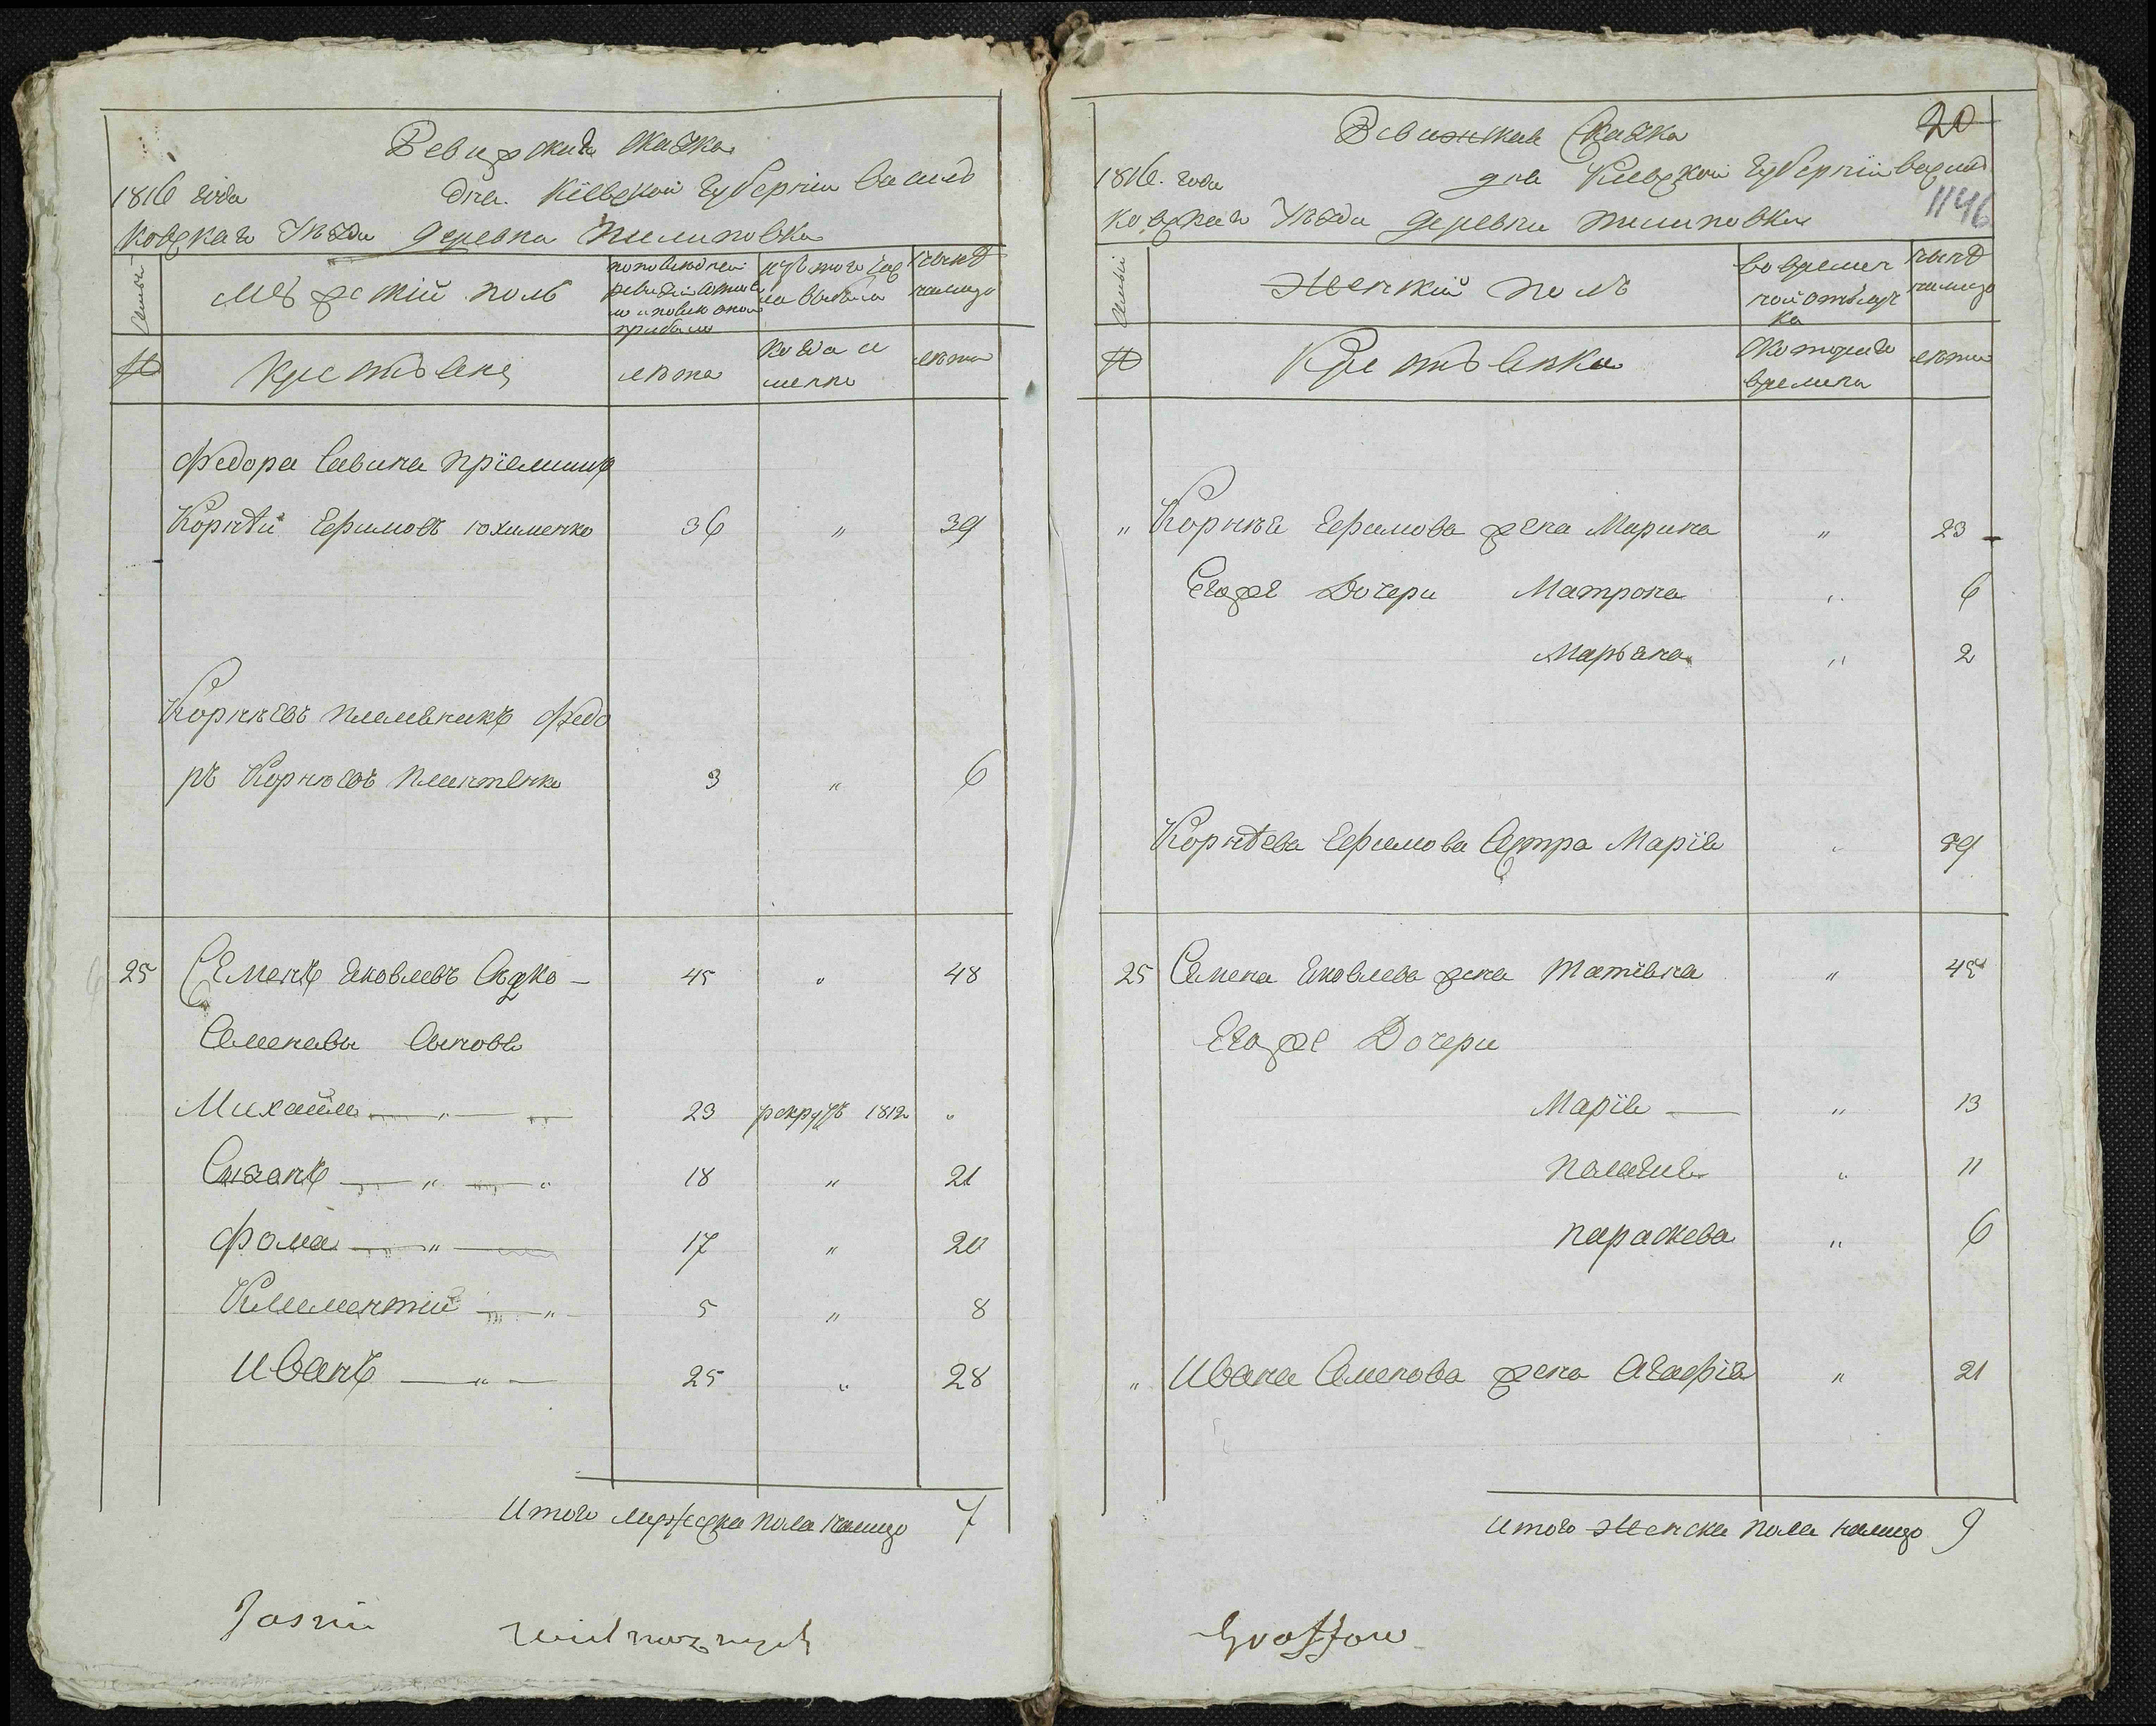 Ревизская сказка
1816 года дня. Кіевской губерніи василь
ковскаго уезда деревни пилиповки
семьи
мужескій полъ
по последней ревизіи состояло и после оной прибыло
изъ того числа выбыло
ныне налицо
№
крестьяне
лета
когда имянно
лета
Федора Савина пріемышъ
Корнѣй Ефимовъ юхименко 36 " 39
Корнѣевъ племяникъ Федо
ръ Корнѣевъ 3 " 6
25 Семенъ яковлевъ 45 " 48
Семеновы сыновя
Михайла 23 рекрутъ 1812 "
Степанъ " 18 " 21
Фома " 17 " 20
Климентий " 5 " 8
иванъ " 25 " 28
итого мужеска пола налицо 7
20
1146
Ревизская Сказка
1816. года дня Кіевской губерніи василь
ковскаго уезда деревни пилиповки
семьи
женскій полъ
во временной отлучке
ныне налицо
№
Крестьянки
с котораго времени
лета
" Корнѣя Ефимова жена Марина " 23
Егоже Дочери Матрона " 6
Марьяна " 2
Корнѣева Ефимова Сестра Марія " 39
25 Семена яковлева жена Татіяна " 45
Егоже Дочери
Марія " 13
Палагия " 11
параскева " 6
" Ивана Семенова жена Агафія " 21
итого женска пола налицо 9